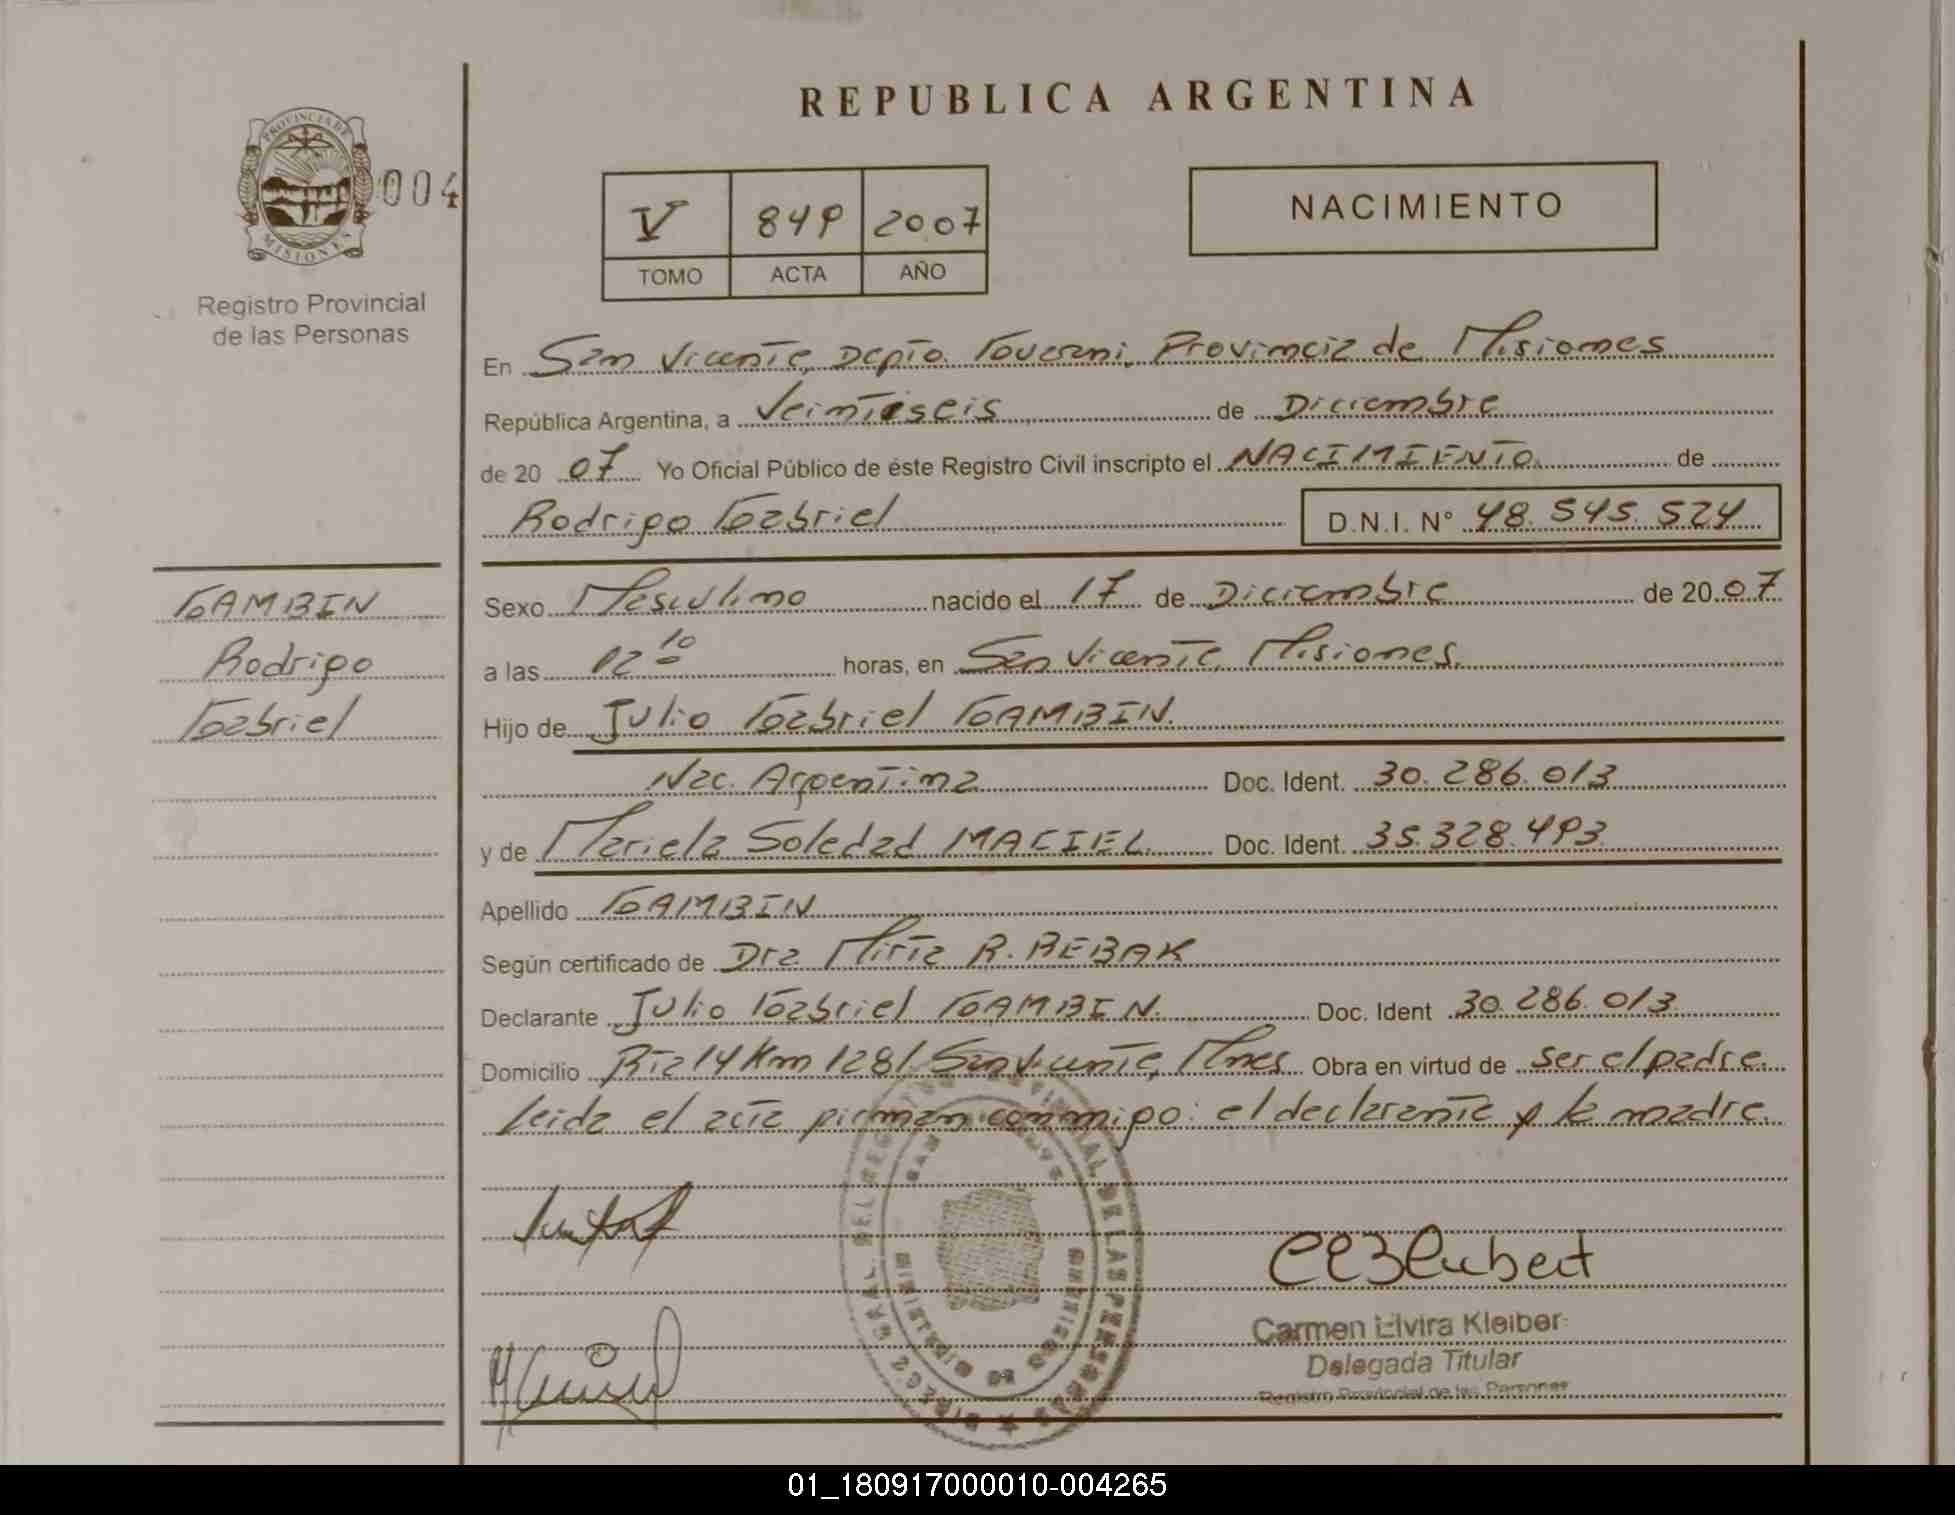 REPUBLICA ARGENTINA
PROVINCIA DE
MISIONES
004
Registro Provincial
de las Personas
V 849 2007
TOMO ACTA AÑO
NACIMIENTO
En San Vicente, Depto. Guaraní, Provincia de Misiones
República Argentina, a Veintiseis de Diciembre
de 20 07 Yo Oficial Público de éste Registro Civil inscripto el NACIMIENTO de
Rodrigo Gabriel D.N.I. N° 48.545.524
GAMBIN
Rodrigo
Gabriel
Sexo Masculino nacido el 17 de Diciembre de 20 07
a las 02 10 horas, en San Vicente, Misiones.
Hijo de Julio Gabriel GAMBIN.
Nac. Argentina Doc. Ident. 30.286.013
y de Mariela Soledad MACIEL. Doc. Ident. 35.328.493
Apellido GAMBIN
Según certificado de Dra Mirta R. BEBAK
Declarante Julio Gabriel GAMBIN. Doc. Ident 30.286.013
Domicilio Rta 14 Km 1281 San Vicente, Mnes Obra en virtud de ser el padre.
leida el acta firman conmigo: el declarante y la madre.
Carmen Elvira Kleiber
Delegada Titular
Registro Provincial de las Personas
01_180917000010-004265